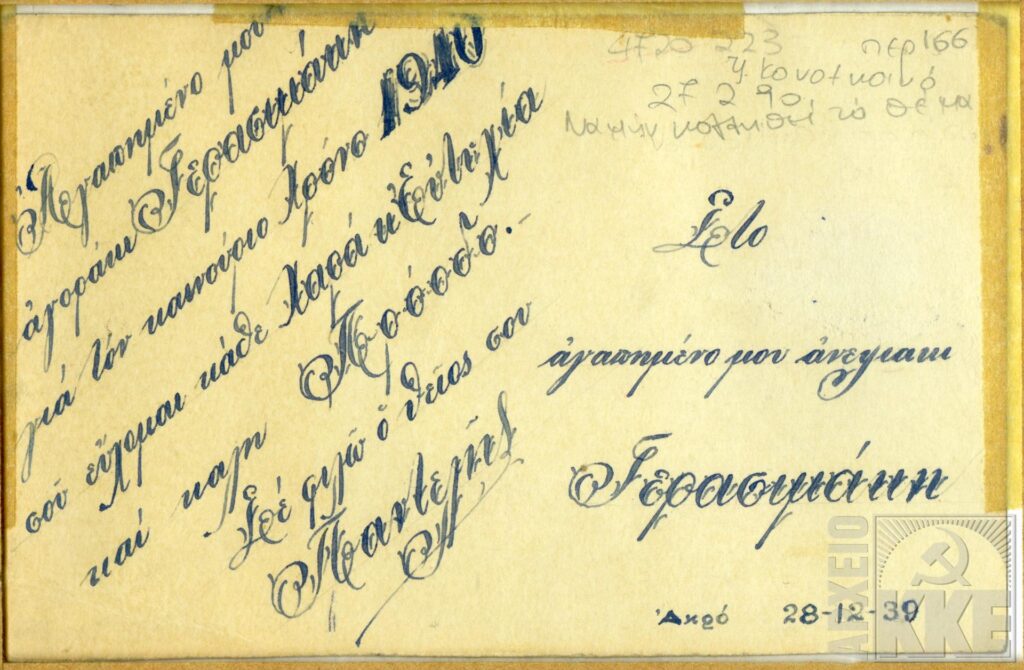 Ἀγαπημένο μου
ἀγοράκι Γερασιμάκη
γιά τόν καινούριο χρόνο 1940
σοῦ εὔχομαι κάθε Χαρά κ Εὐτυχία
καί καλη Πρόοδο.-
Σέ φιλῶ ὁ θεῖος σου
Παντελῆς
4720 223 περ 166
27 2 90
Να μην κολληθεί το θέμα
Στο
ἀγαπημένο μου ἀνεψιακι
Γερασιμάκη
Ἀκρό 28-12-39
ΑΡΧΕΙΟ
ΚΚΕ